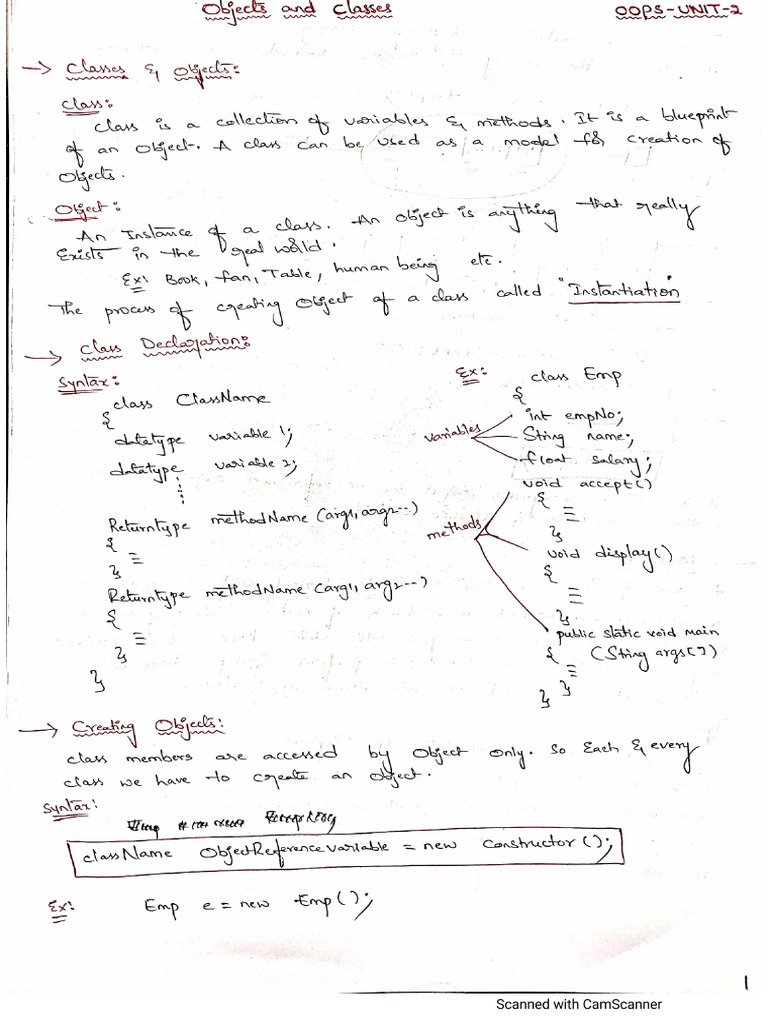 Objects and Classes OOPS-UNIT-2
→ Classes & Objects:
Class:
Class is a collection of variables & methods. It is a blueprint
of an Object. A class can be used as a model for creation of
Objects.
Object:
An Instance of a class. An object is anything that really
Exists in the real world.
Ex: Book, fan, Table, human being etc.
The process of creating Object of a class called "Instantiation
→ Class Declaration:
Syntax:
class ClassName
{
datatype variable 1;
datatype variable 2;
Returntype methodName (arg1, arg2--)
{
}
Returntype methodName (arg1, arg2---)
{
}
}
Ex: class Emp
{
variables
int empNo;
String name;
float salary;
methods
void accept()
{
}
void display()
{
}
public static void main
{ (String args[])
}
}
→ Creating Objects:
class members are accessed by Object Only. So Each & every
class we have to create an Object.
Syntax:
className ObjectReferencevariable = new Constructor();
Ex: Emp e = new Emp();
1
Scanned with CamScanner